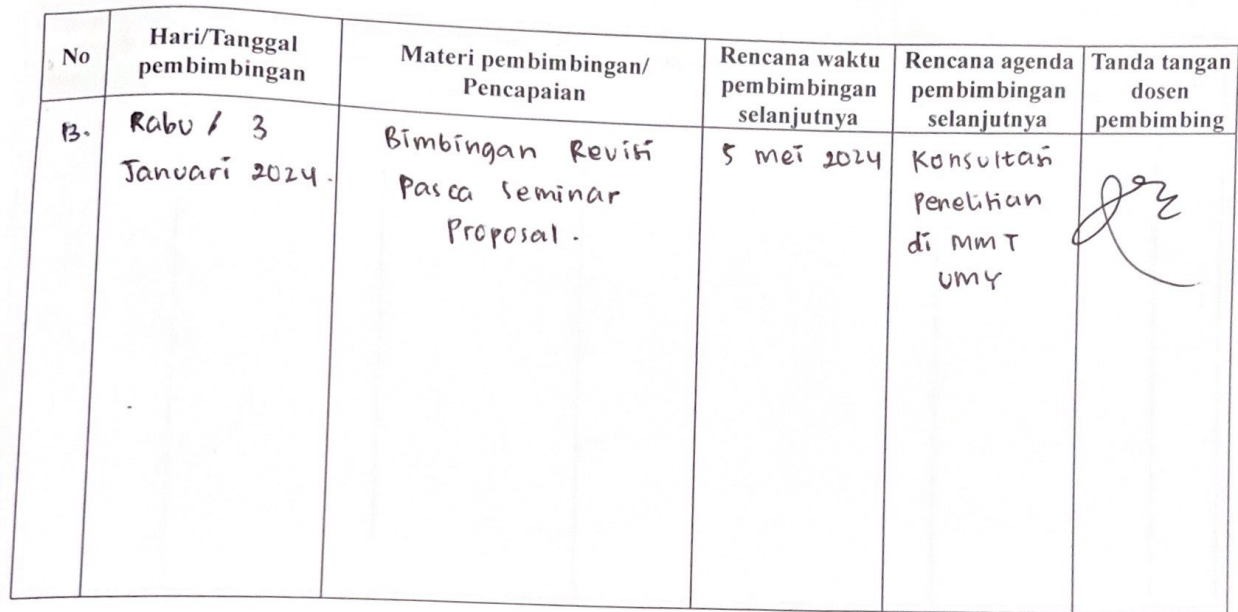 No
Hari/Tanggal
pembimbingan
Materi pembimbingan/
Pencapaian
Rencana waktu
pembimbingan
selanjutnya
Rencana agenda
pembimbingan
selanjutnya
Tanda tangan
dosen
pembimbing
13.
Rabu / 3
Januari 2024.
Bimbingan Revisi
Pasca Seminar
Proposal.
5 mei 2024
Konsultasi
Penelitian
di MMT
UMY